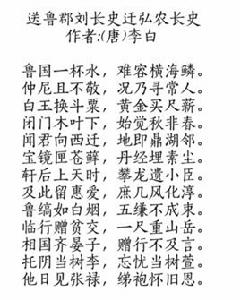 送鲁郡刘长史迁弘农长史
作者:(唐)李白
鲁国一杯水，难容横海鳞。
仲尼且不敬，况乃寻常人。
白玉换斗粟，黄金买尺薪。
闭门木叶下，始觉秋非春。
闻君向西迁，地即鼎湖邻。
宝镜匣苍藓，丹经埋素尘。
轩后上天时，攀龙遗小臣。
及此留惠爱，庶几风化淳。
鲁缟如白烟，五缣不成束。
临行赠贫交，一尺重山岳。
相国齐晏子，赠行不及言。
托阴当树李，忘忧当树萱。
他日见张禄，绨袍怀旧恩。